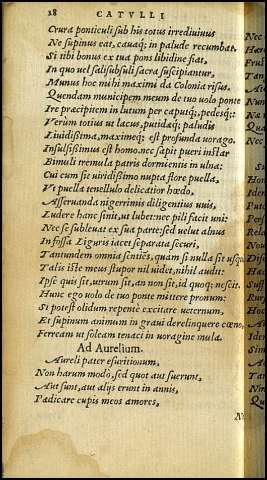 28 CATVLLI
Crura ponticuli sub his totus irrediuiuus
Ne supinus eat, cauaq; in palude recumbat.
Si tibi bonus ex tua pons libidine fiat,
In quo uel salisubsuli sacra suscipiantur,
Munus hoc mihi maximi da Colonia risus.
Quendam municipem meum de tuo uolo ponte
Ire præcipitem in lutum per caputq; pedesq;:
Verùm totius ut lacus, putidæq; paludis
Liuidissima, maximeq; est profunda uorago.
Insulsissimus est homo. nec sapit pueri instar
Bimuli tremula patris dormientis in ulna:
Cui cum sit uiridissimo nupta flore puella,
Vt puella tenellulo delicatior hœdo,
Asseruanda nigerrimis diligentius uuis,
Ludere hanc sinit, ut lubet: nec pili facit uni:
Nec se subleuat ex sua parte: sed uelut alnus
In fossa Liguris iacet separata securi,
Tantundem omnia sentiẽs, quam si nulla sit usqȝ
Talis iste meus stupor nil uidet, nihil audit:
Ipse quis sit, utrum sit, an non sit, id quoq; nescit.
Hunc ego uolo de tuo ponte mittere pronum:
Si potest olidum repente excitare ueternum,
Et supinum animum in graui derelinquere cœno,
Ferream ut soleam tenaci in uoragine mula.
Ad Aurelium.
Aureli pater esuritionum,
Non harum modò, sed quot aut fuerunt,
Aut sunt, aut alijs erunt in annis,
Pædicare cupis meos amores,